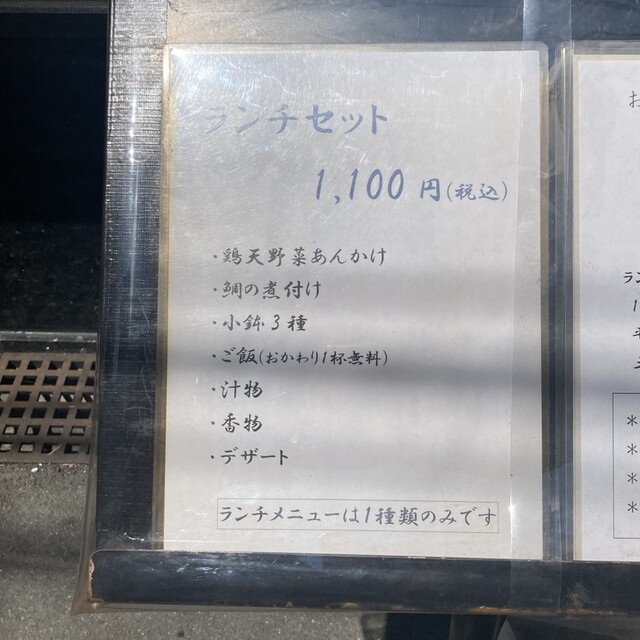 ランチセット
1,100円(税込)
・鶏天野菜あんかけ
・鯛の煮付け
・小鉢3種
・ご飯(おかわり1杯無料)
・汁物
・香物
・デザート
ランチメニューは1種類のみです
お
ラン
1
＊
＊
＊
＊